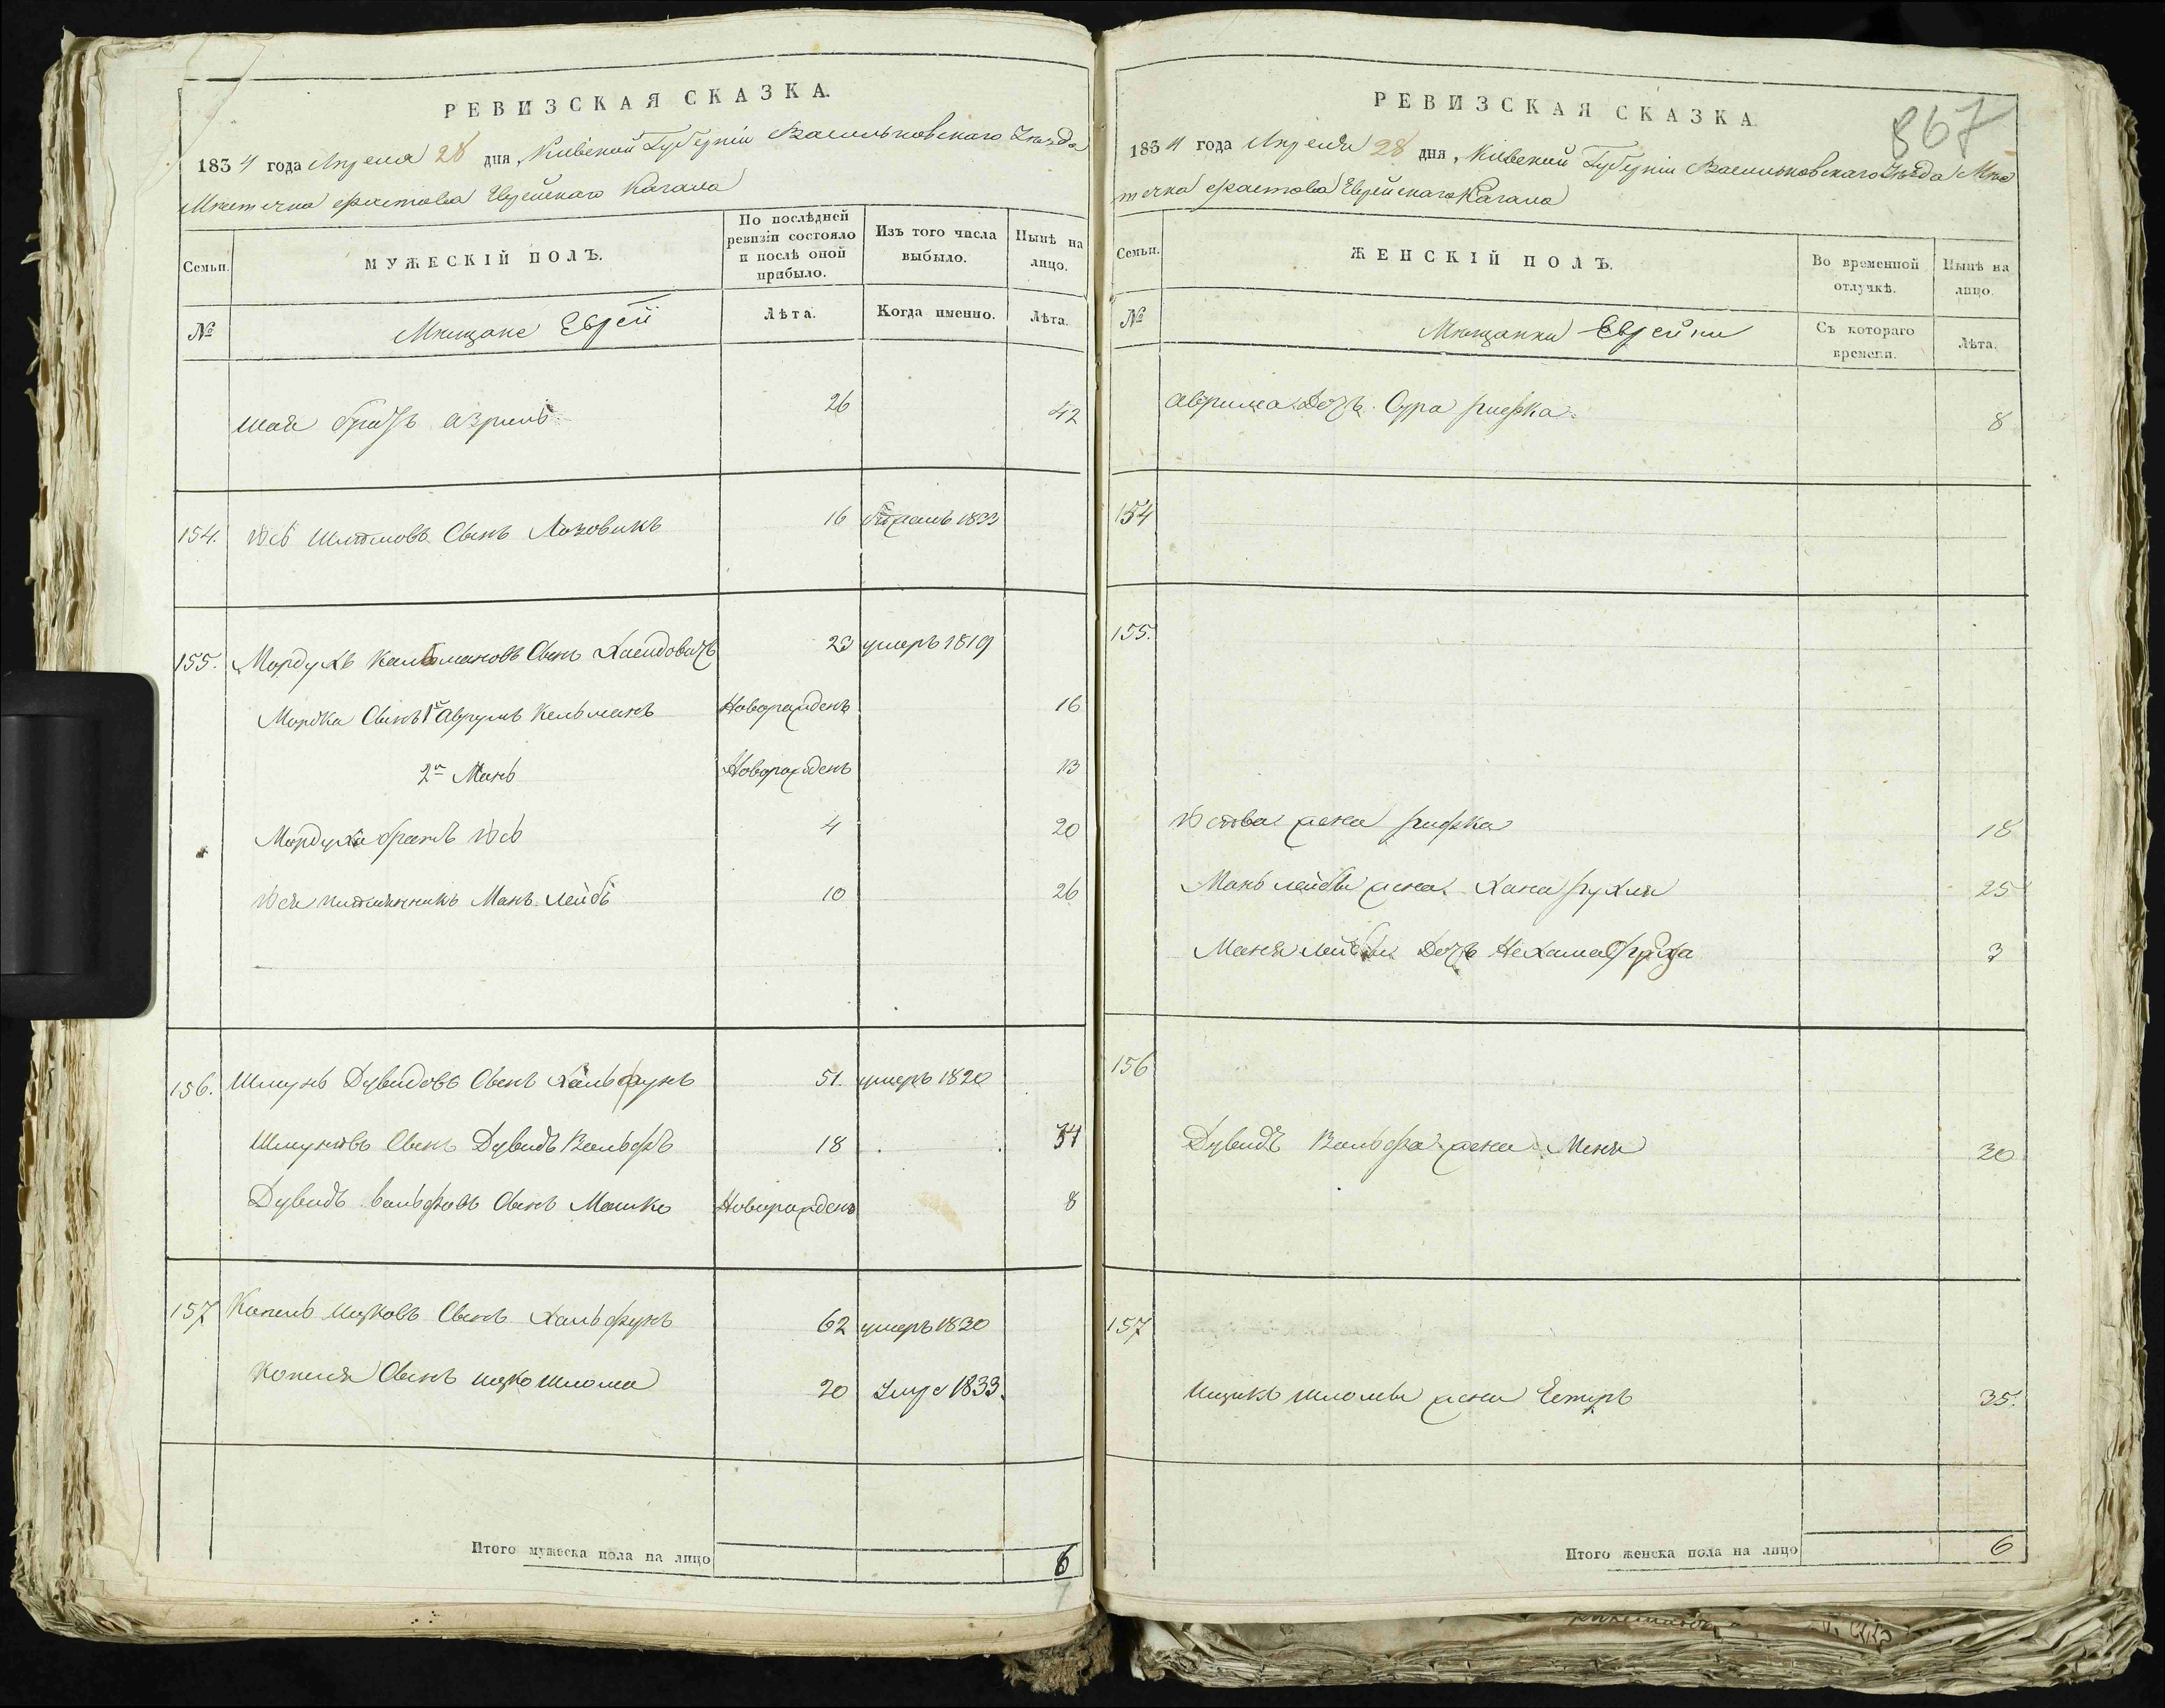 РЕВИЗСКАЯ СКАЗКА.
1834 года Апреля 28 дня, Кіевской Губерніи Васильковскаго Уѣзда
Мѣстечка Фастова Еврейскаго Кагала
Семьи. МУЖЕСКІЙ ПОЛЪ. По послѣдней ревизіи состояло и послѣ оной прибыло. Изъ того числа выбыло. Нынѣ на лицо.
№ Мещане Евреи Лѣта. Когда именно. Лѣта.
Шая братъ Азриль 26 42
154. Іось Сынъ Лозовикъ 16 1833
155. Мордухъ Кальмановъ Сынъ 23 умеръ 1819
Мордка Сынъ 1й Аврумъ Кельманъ Новорожденъ 16
2й Мань Новорожденъ 13
Мордуха братъ Іось 4 20
Іося племянникъ Мань Лейбъ 10 26
156. Шмунь Дувидовъ Сынъ Хальфунъ 51. умеръ 1820
Шмуновъ Сынъ Дувидъ Вольфъ 18 34
Дувидъ Вольфовъ Сынъ Мошко Новорожденъ 8
157 Копель Ицковъ Сынъ Хальфунъ 62 умеръ 1820
Копеля Сынъ Ицко Шлома 20 1833.
Итого мужеска пола на лицо 6
7
867
РЕВИЗСКАЯ СКАЗКА.
1834 года Апреля 28 дня, Кіевской Губерніи Васильковскаго Уѣзда Мѣс
течка Фастова Еврейскаго Кагала
Семьи. ЖЕНСКІЙ ПОЛЪ. Во временной отлучкѣ. Нынѣ на лицо.
№ Мещанки Еврейки Съ котораго времени. Лѣта.
Аврума Дочь Сура Рифка 8
154
155.
Іосьова жена Рифка 18
Мань Лейбы жена Хана Рухля 25
Маня Лейбы Дочь Нехама 3
156
Дувидъ Вольфа жена Меня 30
157
Ицикъ Шломы жена Естеръ 35.
Итого женска пола на лицо 6